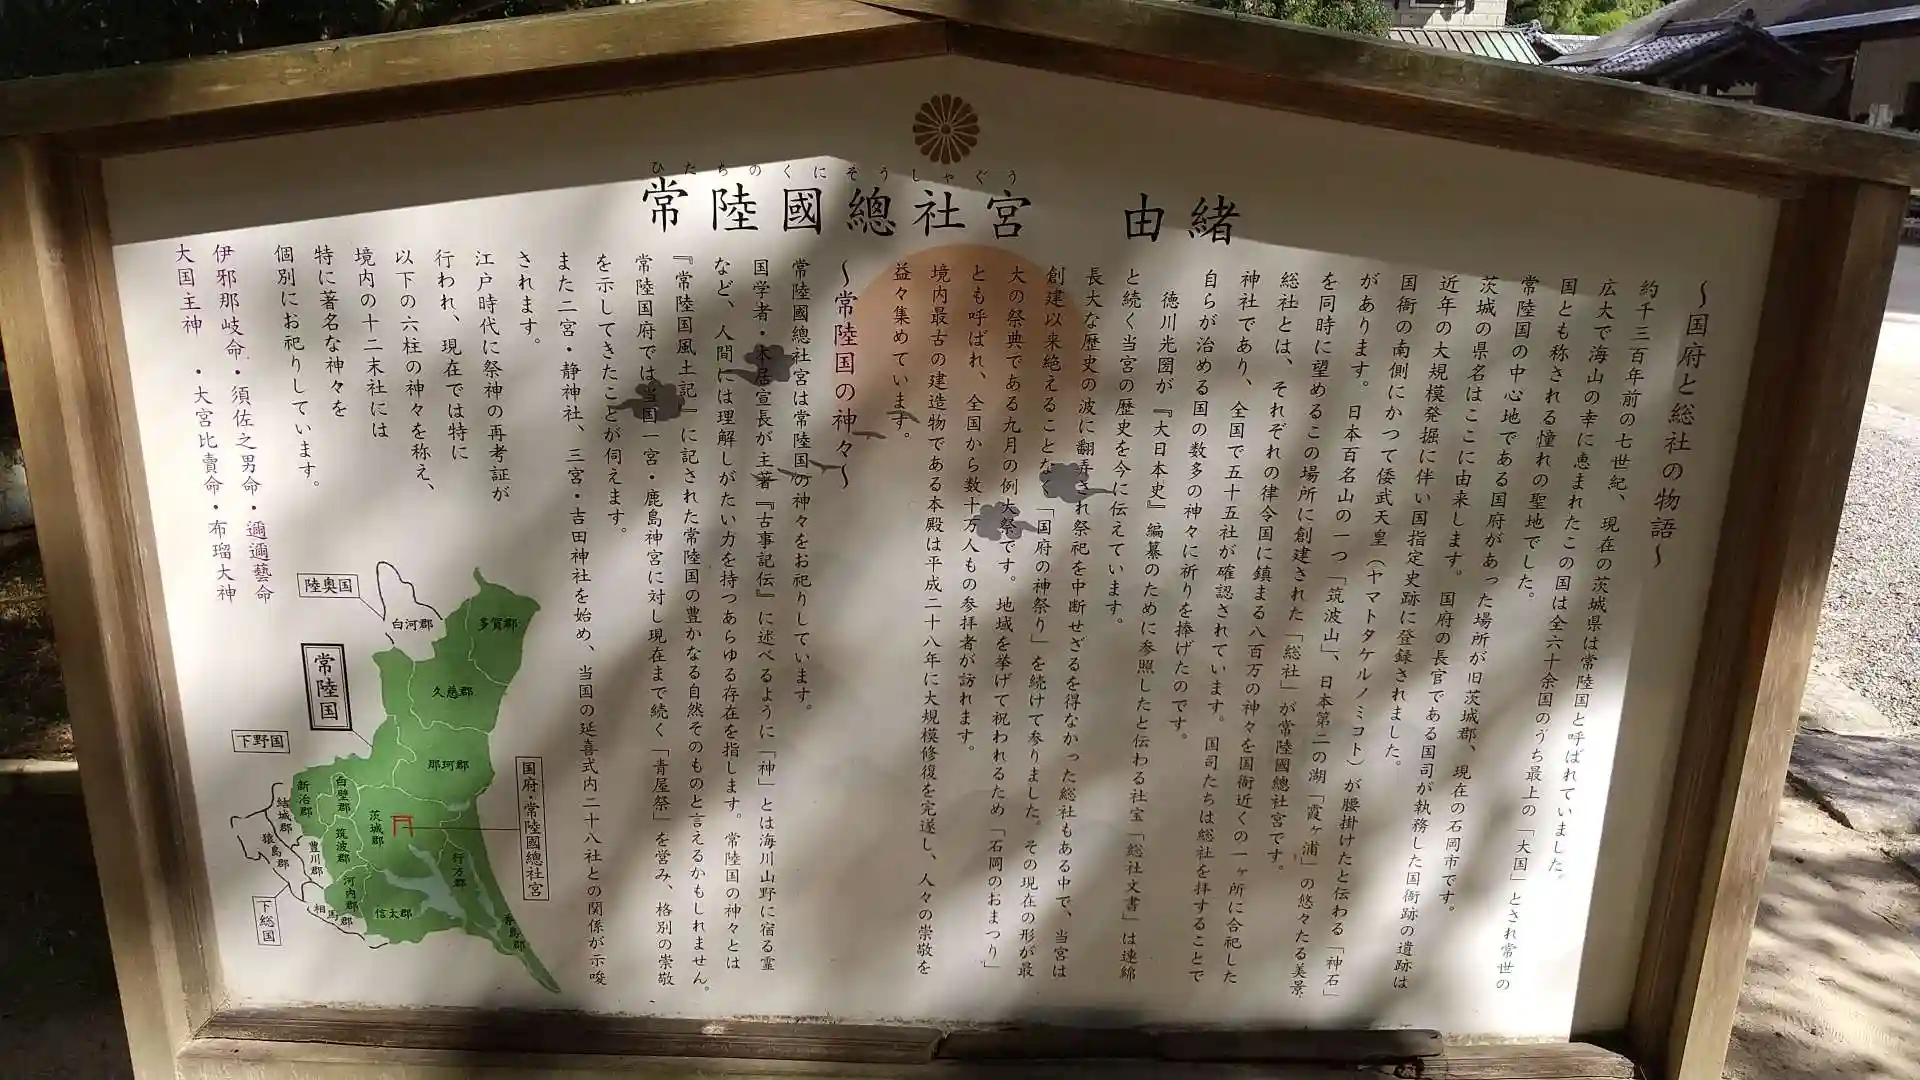 ひたちのくにそうしゃぐう
常陸國總社宮 由緒
～国府と総社の物語～
約千三百年前の七世紀、現在の茨城県は常陸国と呼ばれていました。
広大で海山の幸に恵まれたこの国は全六十余国のうち最上の「大国」とされ常世の
国とも称される憧れの聖地でした。
常陸国の中心地である国府があった場所が旧茨城郡、現在の石岡市です。
茨城の県名はここに由来します。国府の長官である国司が執務した国衙跡の遺跡は
近年の大規模発掘に伴い国指定史跡に登録されました。
国衙の南側にかつて倭武天皇（ヤマトタケルノミコト）が腰掛けたと伝わる「神石」
があります。日本百名山の一つ「筑波山」、日本第二の湖「霞ヶ浦」の悠々たる美景
を同時に望めるこの場所に創建された「総社」が常陸國總社宮です。
総社とは、それぞれの律令国に鎮まる八百万の神々を国衙近くの一ヶ所に合祀した
神社であり、全国で五十五社が確認されています。国司たちは総社を拝することで
自らが治める国の数多の神々に祈りを捧げたのです。
徳川光圀が『大日本史』編纂のために参照したと伝わる社宝「総社文書」は連綿
と続く当宮の歴史を今に伝えています。
長大な歴史の波に翻弄され祭祀を中断せざるを得なかった総社もある中で、当宮は
創建以来絶えることなく「国府の神祭り」を続けて参りました。その現在の形が最
大の祭典である九月の例大祭です。地域を挙げて祝われるため「石岡のおまつり」
とも呼ばれ、全国から数十万人もの参拝者が訪れます。
境内最古の建造物である本殿は平成二十八年に大規模修復を完遂し、人々の崇敬を
益々集めています。
～常陸国の神々～
常陸國總社宮は常陸国の神々をお祀りしています。
国学者・本居宣長が主著『古事記伝』に述べるように「神」とは海川山野に宿る霊
など、人間には理解しがたい力を持つあらゆる存在を指します。常陸国の神々とは
『常陸国風土記』に記された常陸国の豊かなる自然そのものと言えるかもしれません。
常陸国府では当国一宮・鹿島神宮に対し現在まで続く「青屋祭」を営み、格別の崇敬
を示してきたことが伺えます。
また二宮・静神社、三宮・吉田神社を始め、当国の延喜式内二十八社との関係が示唆
されます。
江戸時代に祭神の再考証が
行われ、現在では特に
以下の六柱の神々を称え、
境内の十二末社には
特に著名な神々を
個別にお祀りしています。
伊邪那岐命・須佐之男命・邇邇藝命
大国主神・大宮比賣命・布瑠大神
陸奥国
白河郡
多賀郡
常陸国
久慈郡
下野国
那珂郡
国府・常陸國總社宮
新治郡
白壁郡
結城郡
茨城郡
筑波郡
猿島郡
豊川郡
行方郡
河内郡
相馬郡
信太郡
下総国
香島郡